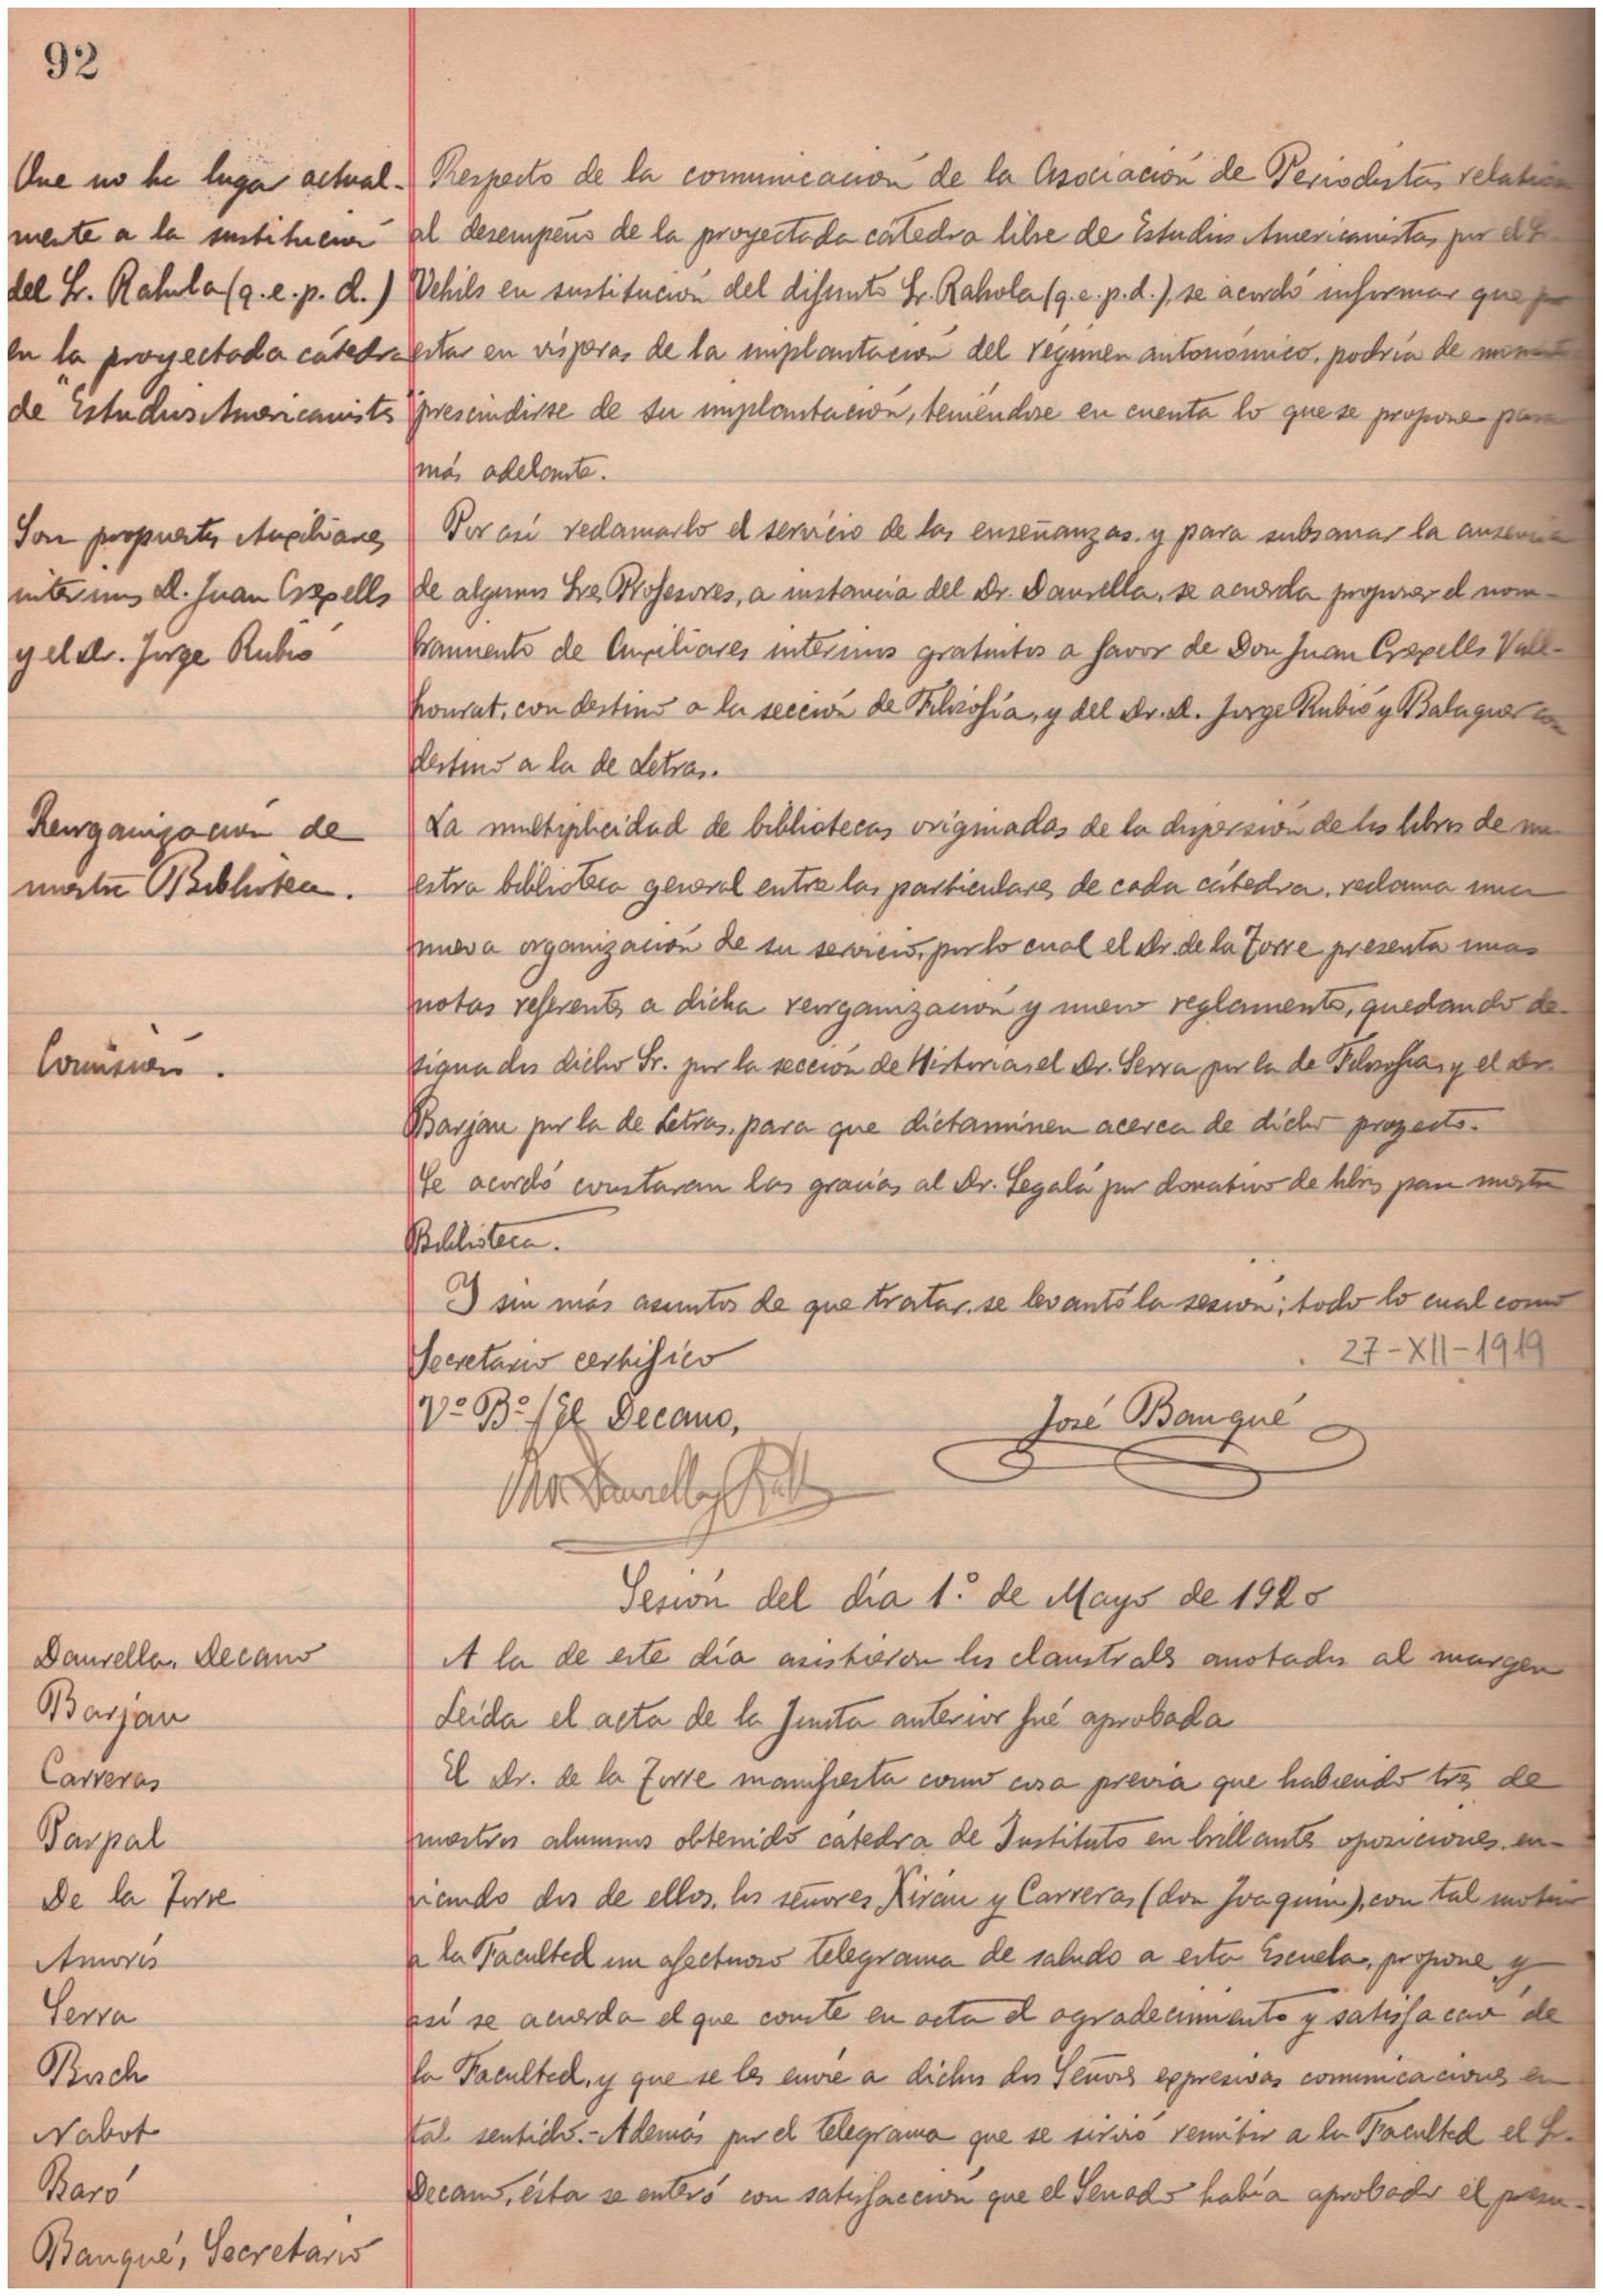 92
Que no ha lugar actual-
mente a la sustitución
del Sr. Rahola (q.e.p.d.)
en la proyectada cátedra
de "Estudios Americanistas
Respecto de la comunicación de la Asociación de Periodistas relativa
al desempeño de la proyectada cátedra libre de Estudios Americanistas por el Sr.
Vehils en sustitución del difunto Sr. Rahola (q.e.p.d.), se acordó informar que por
estar en vísperas de la implantación del régimen autonómico, podría de momento
prescindirse de su implantación, teniéndose en cuenta lo que se propone para
más adelante.
Son propuestos Auxiliares
interinos D. Juan Crexells
y el Dr. Jorge Rubió
Por así reclamarlo el servicio de las enseñanzas, y para subsanar la ausencia
de algunos Sres Profesores, a instancia del Dr. Daurella, se acuerda proponer el nom-
bramiento de Auxiliares interinos gratuitos a favor de Don Juan Crexells Vall-
honrat, con destino a la sección de Filosofía, y del Dr. D. Jorge Rubió y Balaguer con
destino a la de Letras.
Reorganización de
nuestra Biblioteca.
La multiplicidad de bibliotecas originadas de la dispersión de los libros de nu-
estra biblioteca general entre las particulares de cada cátedra, reclama una
nueva organización de su servicio, por lo cual el Dr. de la Torre presenta unas
notas referentes a dicha reorganización y nuevo reglamento, quedando de-
Comisión.
signados dicho Sr. por la sección de Historia, el Dr. Serra por la de Filosofía, y el Dr.
Barjau por la de Letras, para que dictaminen acerca de dicho proyecto.
Se acordó constaran las gracias al Dr. Segalá por donativo de libros para nuestra
Biblioteca.
Y sin más asuntos de que tratar, se levantó la sesión; todo lo cual como
Secretario certifico
27-XII-1919
Vº Bº / El Decano,
José Banqué
Daurella y Rull
Sesión del día 1.º de Mayo de 1920
Daurella, Decano
Barjau
Carreras
Parpal
De la Torre
Amorós
Serra
Bosch
Nabot
Baró
Banqué, Secretario
A la de este día asistieron los claustrales anotados al margen
Leída el acta de la Junta anterior fué aprobada
El Dr. de la Torre manifiesta como cosa previa que habiendo tres de
nuestros alumnos obtenido cátedra de Instituto en brillantes oposiciones, en-
viando dos de ellos, los señores Xirau y Carreras (don Joaquin), con tal motivo
a la Facultad un afectuoso telegrama de saludo a esta Escuela, propone y
así se acuerda el que conste en acta el agradecimiento y satisfacción de
la Facultad, y que se les envíe a dichos dos Señores expresivas comunicaciones en
tal sentido.- Además por el telegrama que se sirvió remitir a la Facultad el Sr.
Decano, ésta se enteró con satisfacción que el Senado había aprobado el presu-